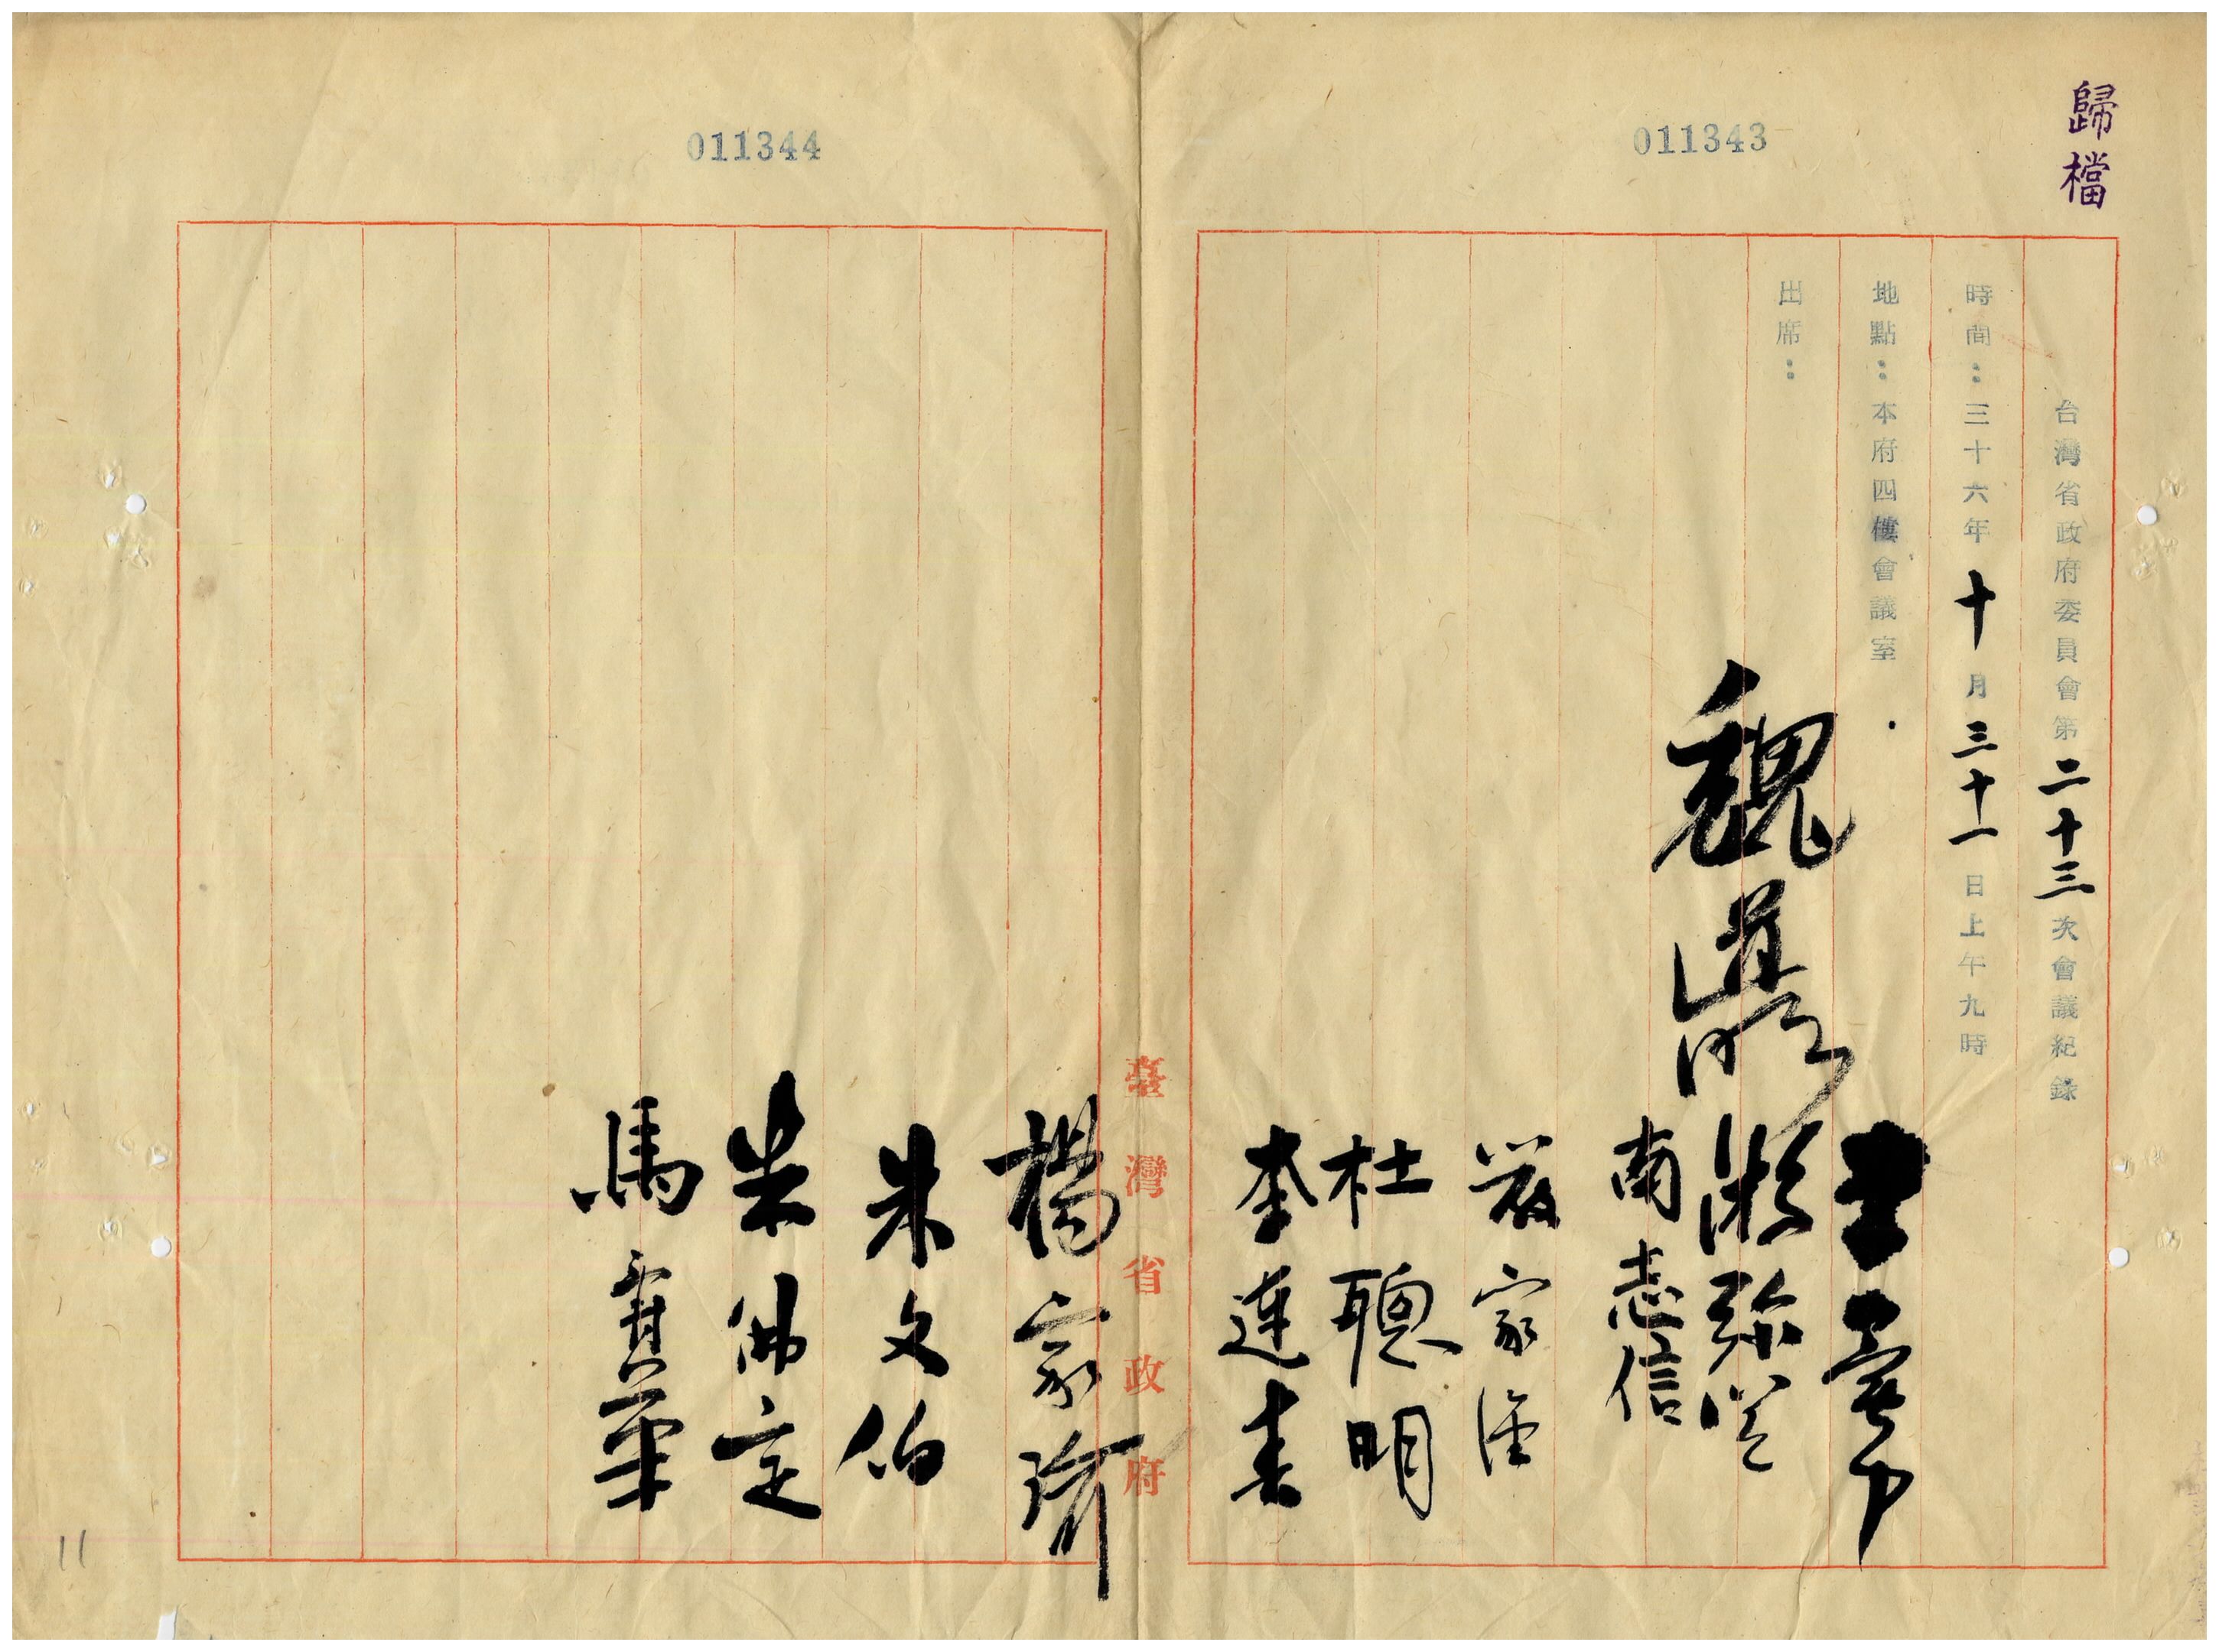 歸檔
011343
台灣省政府委員會第二十三次會議紀錄
時間：三十六年十月三十一日上午九時
地點：本府四樓會議室
出席：
魏道明
王民寧
游彌堅
南志信
嚴家淦
杜聰明
李連春
臺灣省政府
011344
楊家瑜
朱文伯
朱佛定
馬壽華
11